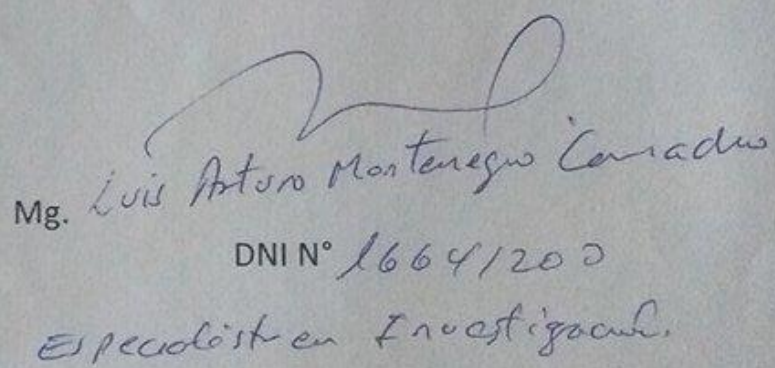 Mg. Luis Arturo Montenegro Camacho
DNI N° 16641200
Especialista en Investigación.